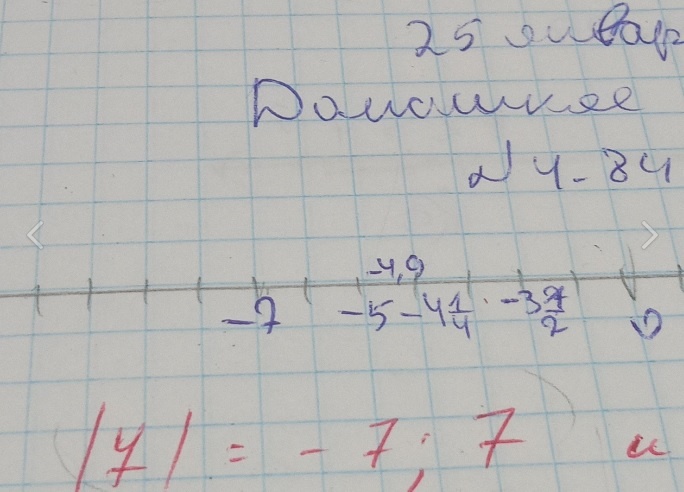 25 январ
Домашнее
№4-84
-4,9
-7 -5 -4 1/4 -3 1/2 0
|7| = - 7; 7 и